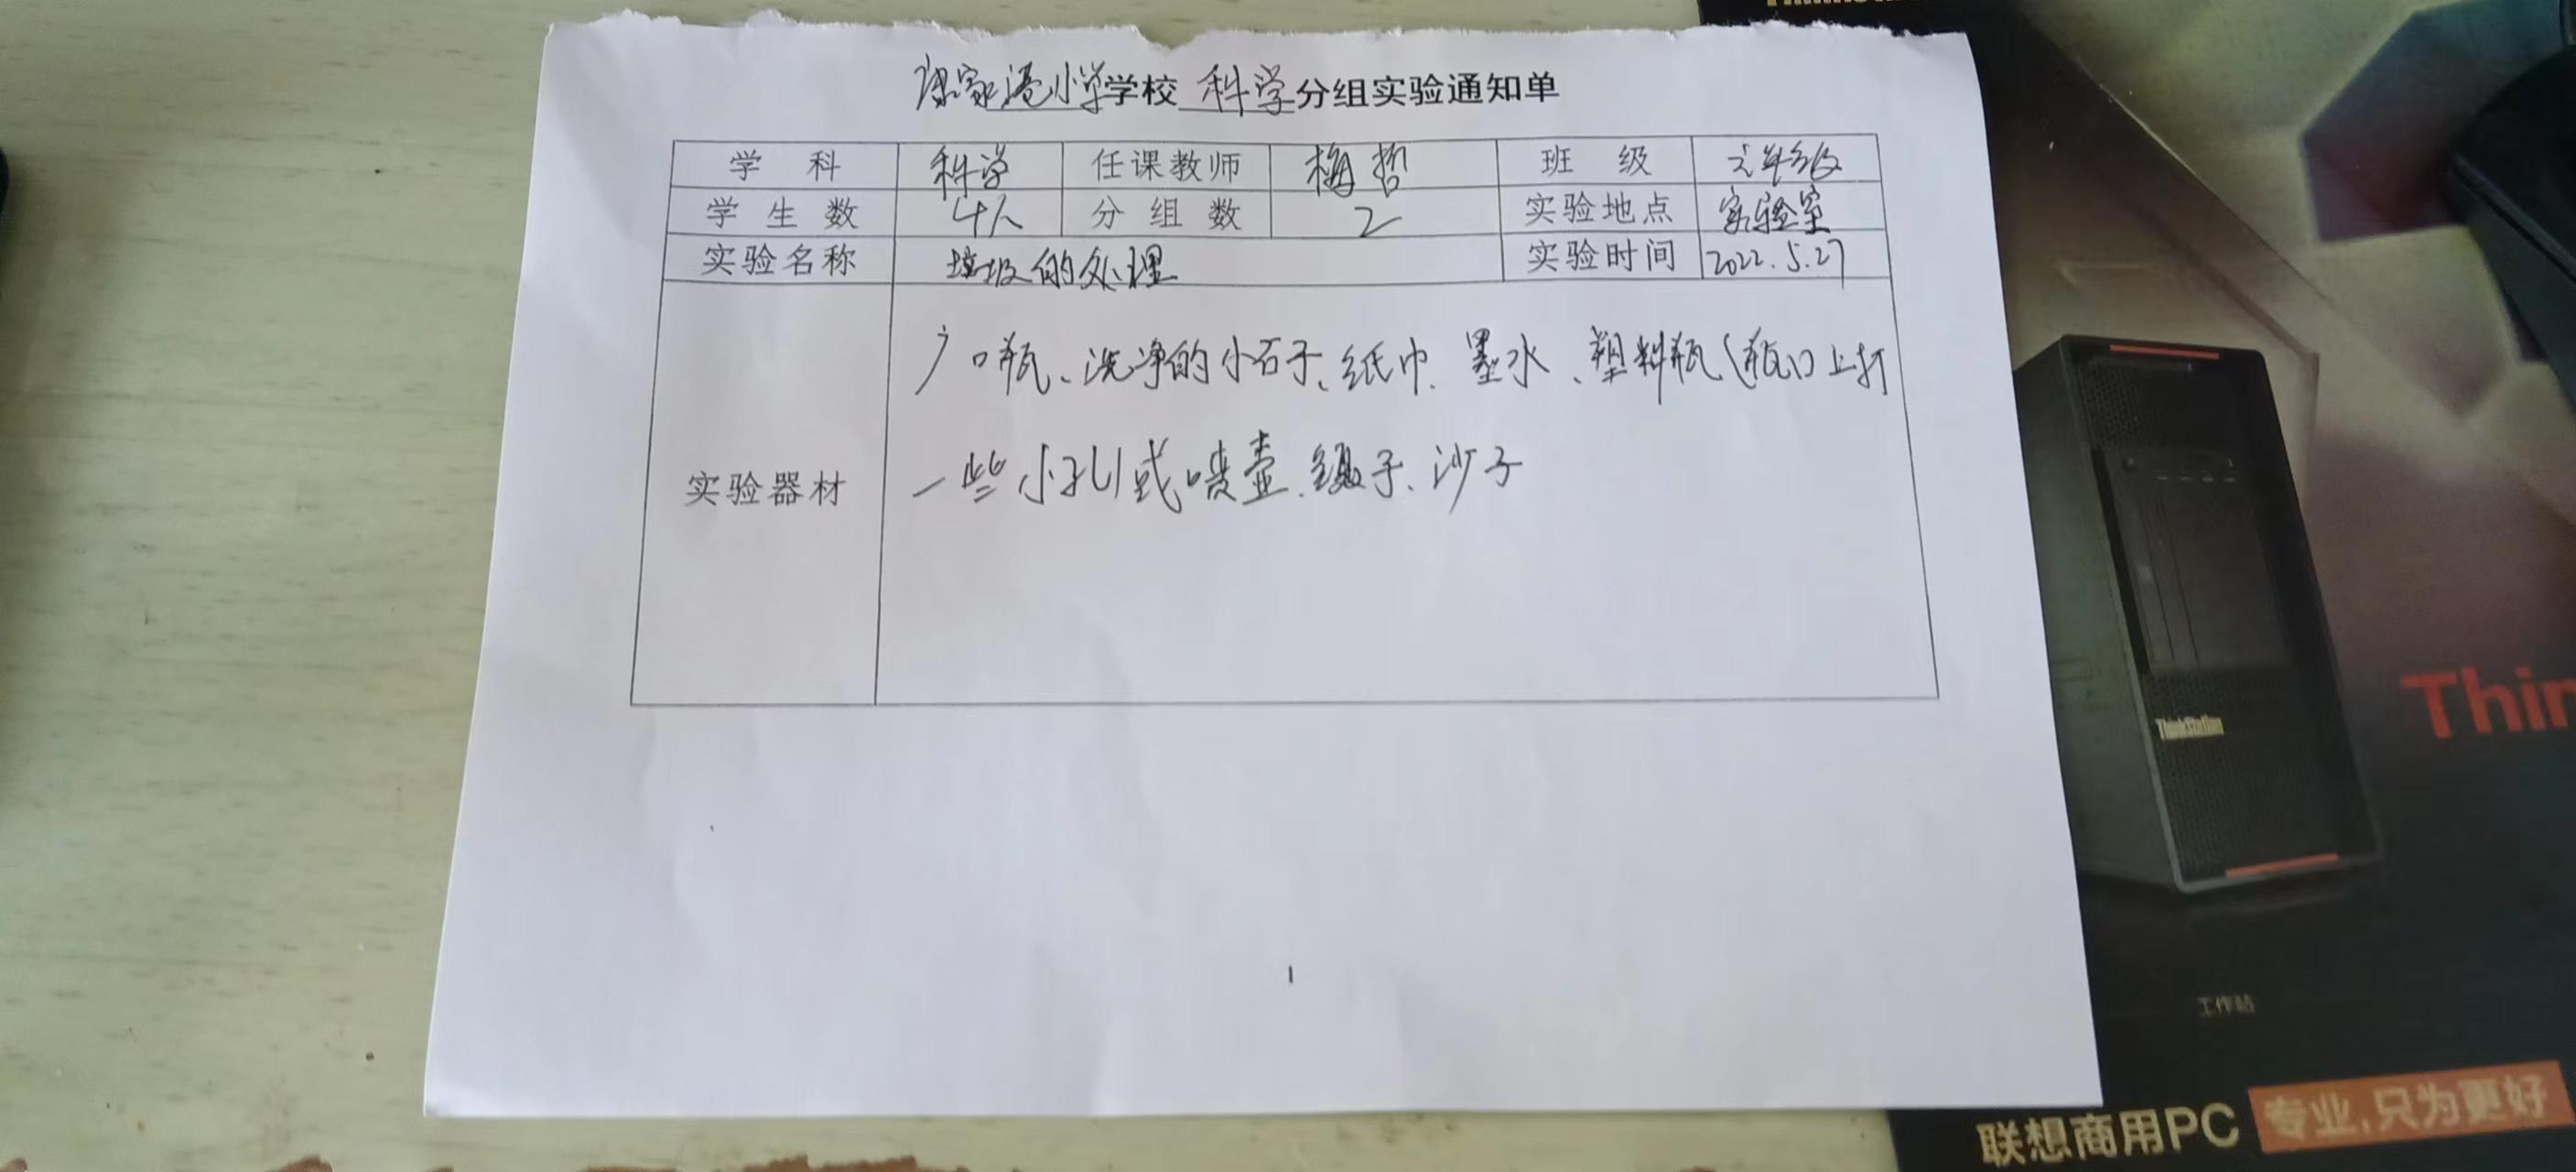 谭家湾小学学校 科学分组实验通知单
学 科 科学 任课教师 梅哲 班 级 六年级
学生数 4人 分组数 2 实验地点 实验室
实验名称 垃圾的处理 实验时间 2022.5.27
广口瓶、洗净的小石子、纸巾、墨水、塑料瓶(瓶口上打
实验器材 一些小孔)或喷壶、镊子、沙子
1
ThinkStation
Thin
工作站
联想商用PC 专业,只为更好